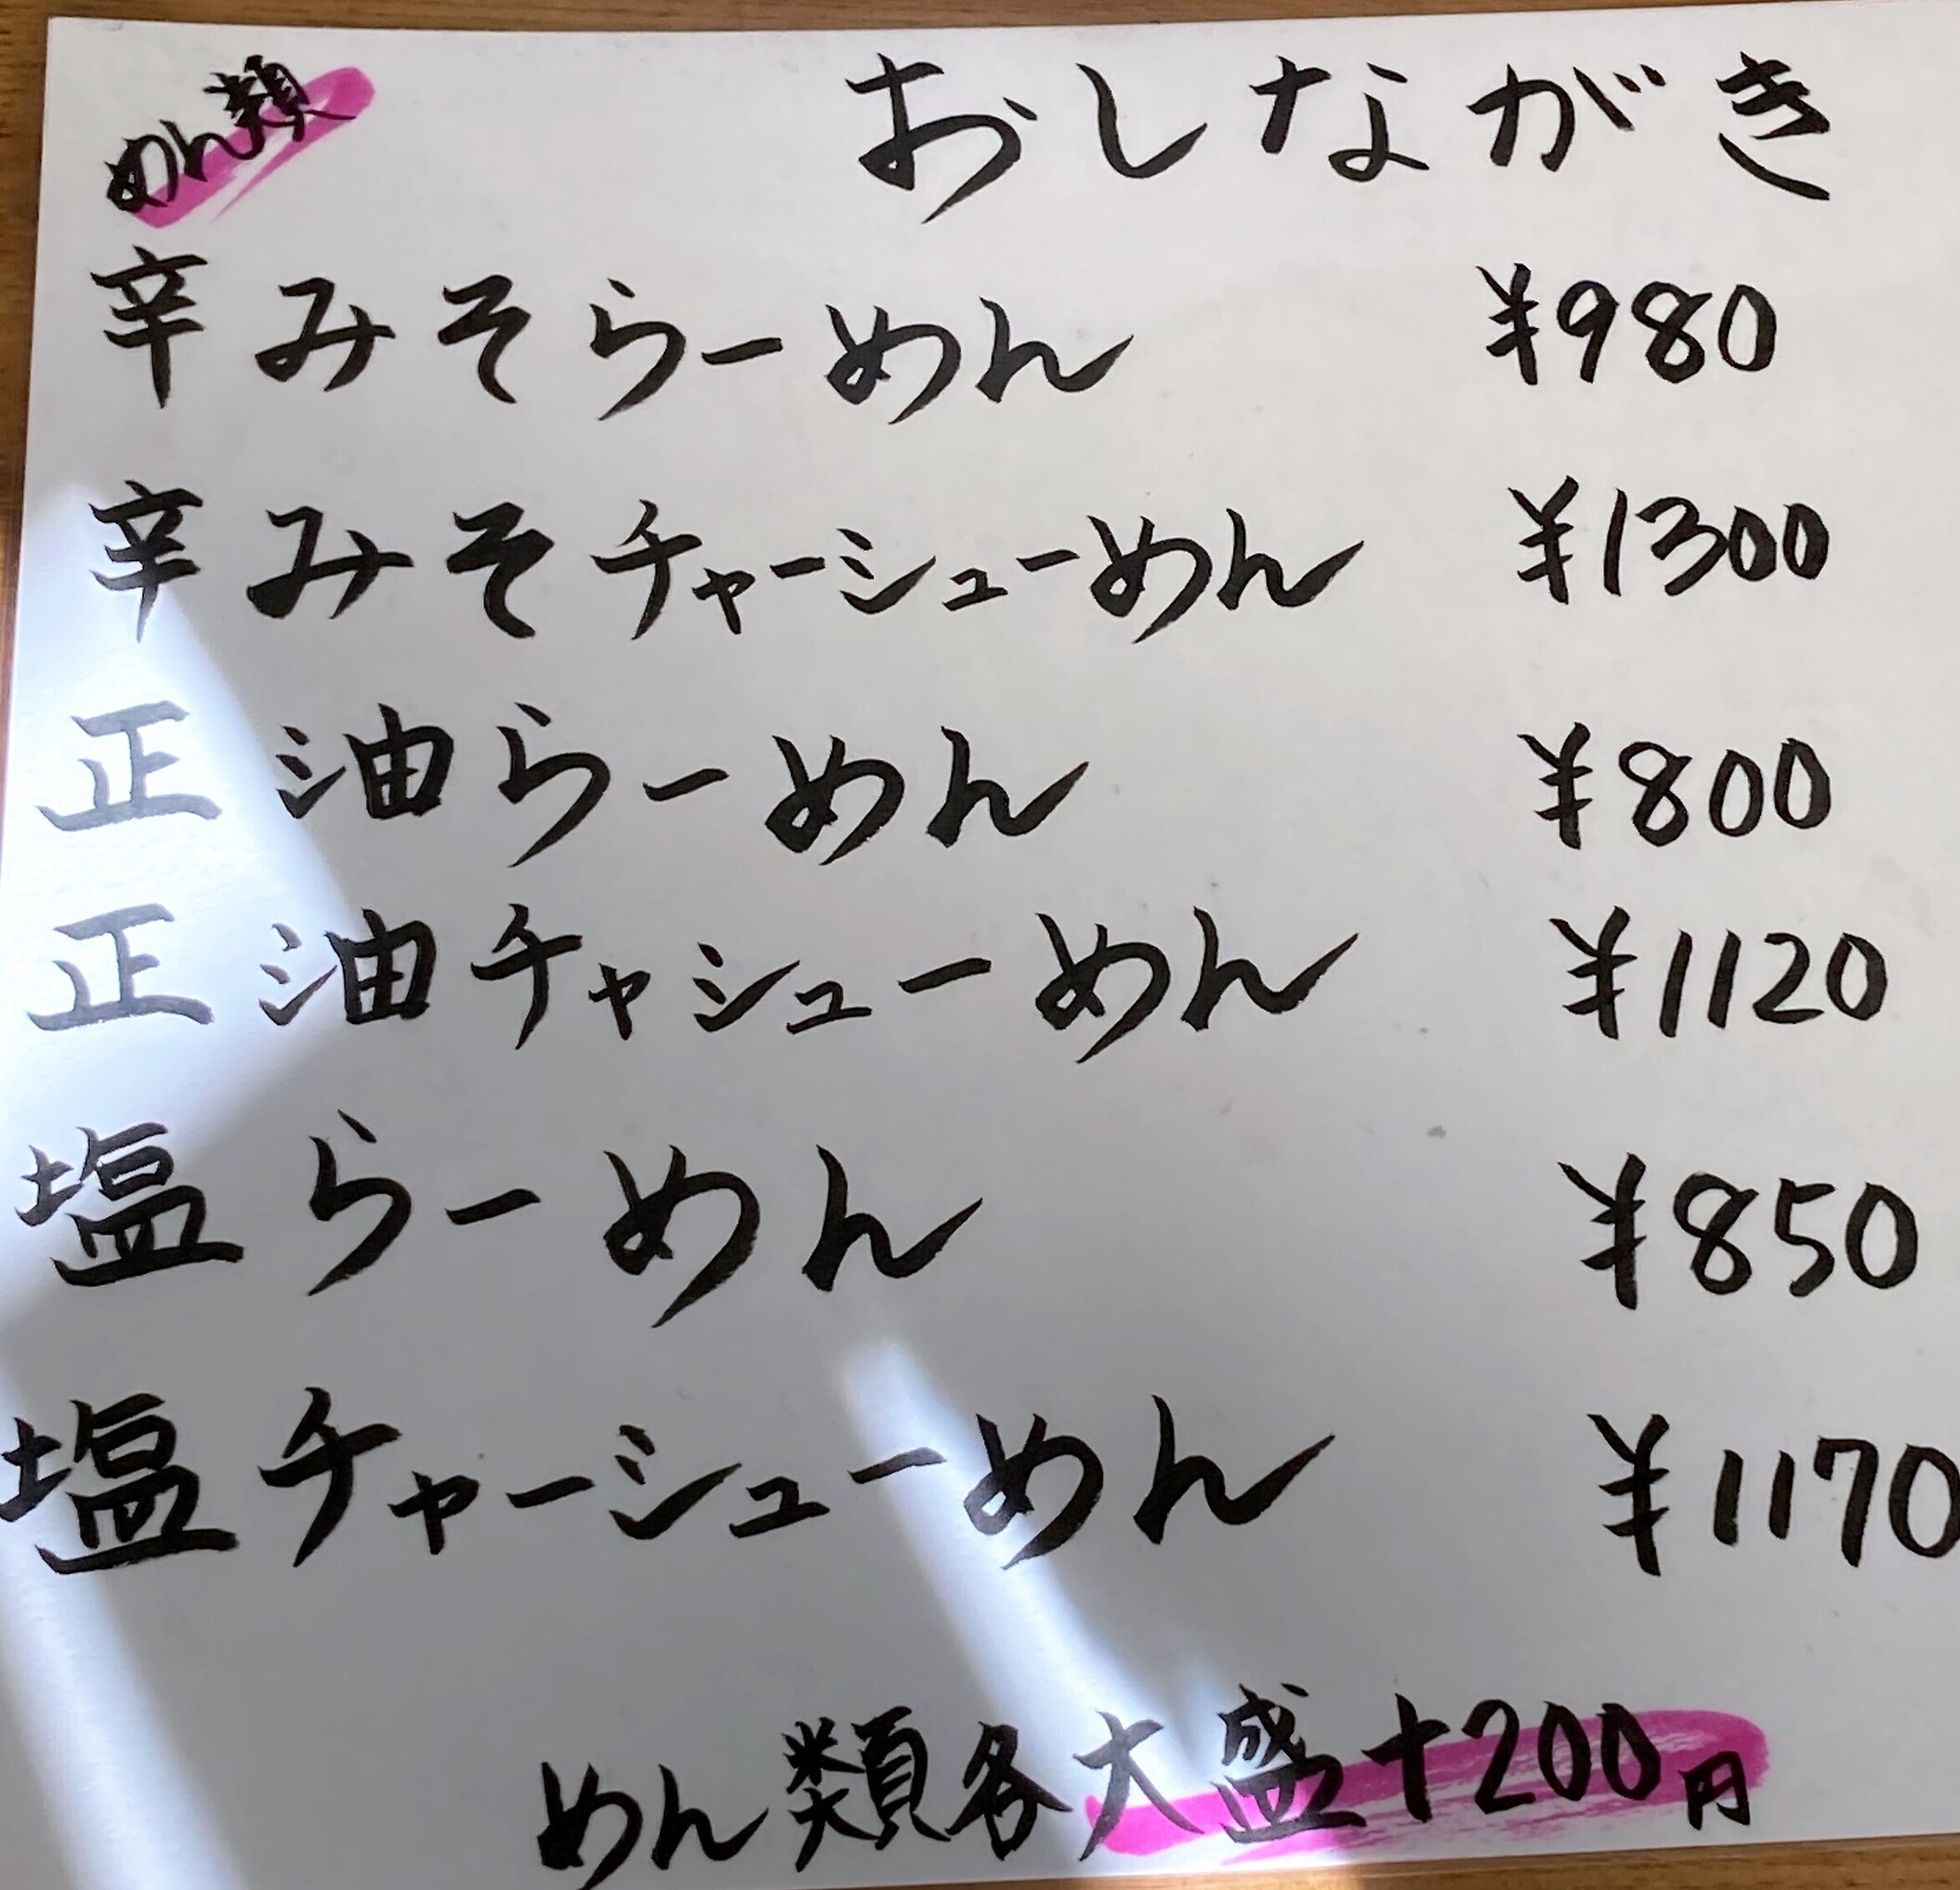 めん類
おしながき
辛みそらーめん ¥980
辛みそチャーシューめん ¥1300
正油らーめん ¥800
正油チャシューーめん ¥1120
塩らーめん ¥850
塩チャーシューーめん ¥1170
めん類各大盛+200円